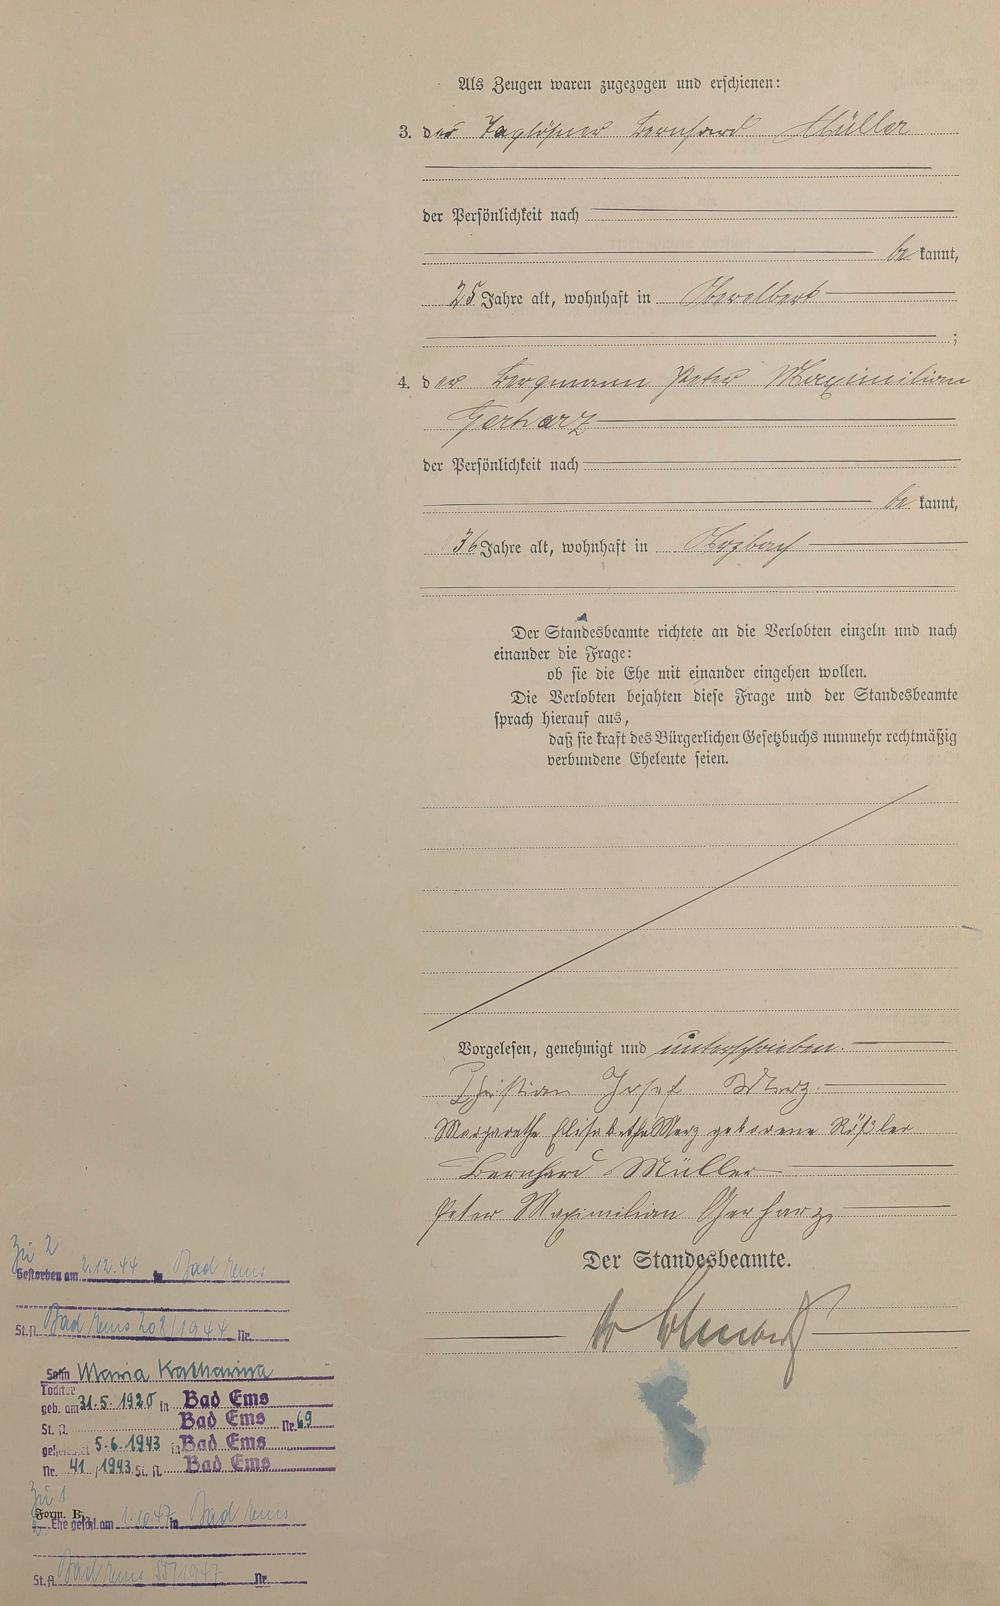 Als Zeugen waren zugezogen und erschienen:
3. der Taglöhner Bernhard Müller
der Persönlichkeit nach
be kannt,
25 Jahre alt, wohnhaft in Oberelbert
;
4. der Bergmann Peter Maximilian
Gerharz
der Persönlichkeit nach
be kannt,
36 Jahre alt, wohnhaft in Arzbach
Der Standesbeamte richtete an die Verlobten einzeln und nach
einander die Frage:
ob sie die Ehe mit einander eingehen wollen.
Die Verlobten bejahten diese Frage und der Standesbeamte
sprach hierauf aus,
daß sie kraft des Bürgerlichen Gesetzbuchs nunmehr rechtmäßig
verbundene Eheleute seien.
Vorgelesen, genehmigt und unterschrieben.
Christian Josef Merz
Margarethe Elisabetha Merz geborene Rößler
Bernhard Müller
Peter Maximilian Gerharz
Der Standesbeamte.
Zu 2
Gestorben am 2.12.44 in Bad Ems
St.A. Bad Ems 202/1944 Nr.
Sohn Maria Katharina
Tochter
geb. am 31.5.1920 in Bad Ems
St. A. Bad Ems Nr. 69
geheiratet 5.6.1943 in Bad Ems
Nr. 41/1943 St. A. Bad Ems
Zu 1
Form. B.
2. Ehe geschl. am 1.10.47 in Bad Ems
St.A. Bad Ems 55/1947 Nr.